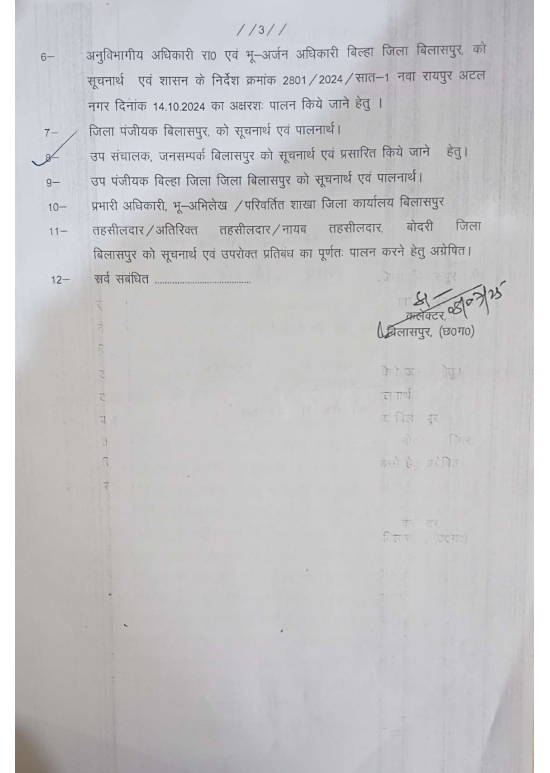 //3//
6– अनुविभागीय अधिकारी रा0 एवं भू–अर्जन अधिकारी बिल्हा जिला बिलासपुर, को
सूचनार्थ एवं शासन के निर्देश क्रमांक 2801/2024/सात–1 नवा रायपुर अटल
नगर दिनांक 14.10.2024 का अक्षरशः पालन किये जाने हेतु ।
7– जिला पंजीयक बिलासपुर, को सूचनार्थ एवं पालनार्थ।
8– उप संचालक, जनसम्पर्क बिलासपुर को सूचनार्थ एवं प्रसारित किये जाने हेतु।
9– उप पंजीयक बिल्हा जिला जिला बिलासपुर को सूचनार्थ एवं पालनार्थ।
10– प्रभारी अधिकारी, भू–अभिलेख /परिवर्तित शाखा जिला कार्यालय बिलासपुर
11– तहसीलदार/अतिरिक्त तहसीलदार/नायब तहसीलदार, बोदरी जिला
बिलासपुर को सूचनार्थ एवं उपरोक्त प्रतिबंध का पूर्णतः पालन करने हेतु अग्रेषित।
12– सर्व संबंधित ....................................
कलेक्टर,
बिलासपुर, (छ0ग0)